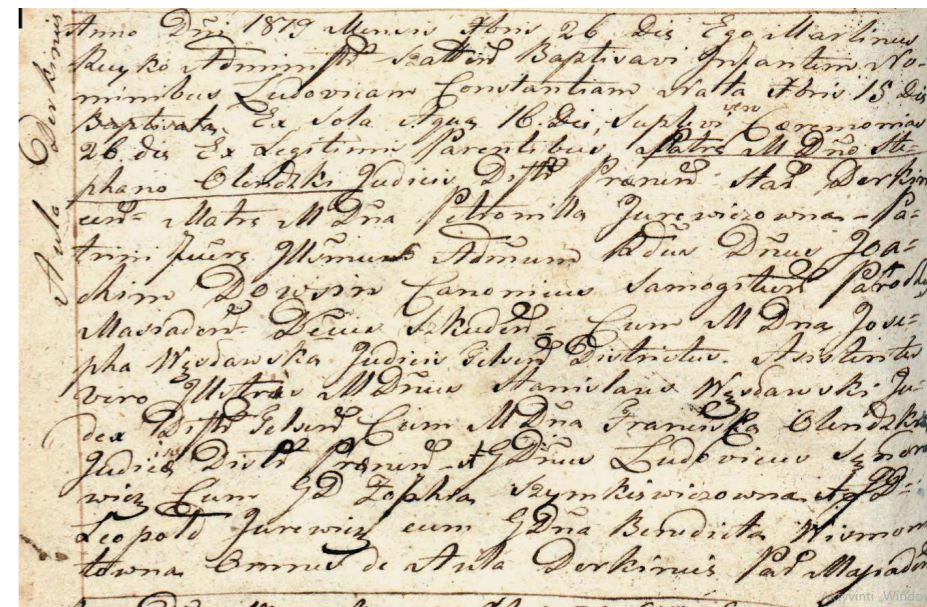 Aula Derkinus
Anno Dñi 1819 Mensis Xbris 26 Die Ego Martinus
Ruyko Administr Szatten Baptisavi Infantem No-
minibus Ludovicam Constantiam Nata Xbris 15 die
Baptisata Ex Sola Aqua 16 die, suplevi Ceremonias
26 die Ex Legitimis Parentibus Patre M Dño Ste-
phano Olendzki Judicis Distr Prænen Star Derkin
cen= Matre M Dña Petronilla Jurewiczowna - Pa-
trini fuere Illsmus Admum Rdus Dñus Joa=
chim Dowsin Canonicus Samogitien
Masiaden= Decus Szkuden= Cum M Dna Jose-
pha Judicis Telsen Districtus. Asistentes
vero M Dñus Stanislaus Ju-
dex Distr Telsen Cum M Dña Olendzka
Judicis Distr Prænen et G Dñus Ludovicus
wicz Cum GD Zophia Szymkiewiczowna et GD=
Leopold Jurewicz cum G Dña Benedicta Wismon
towna Omnes de Aula Derkinis Par Masiaden